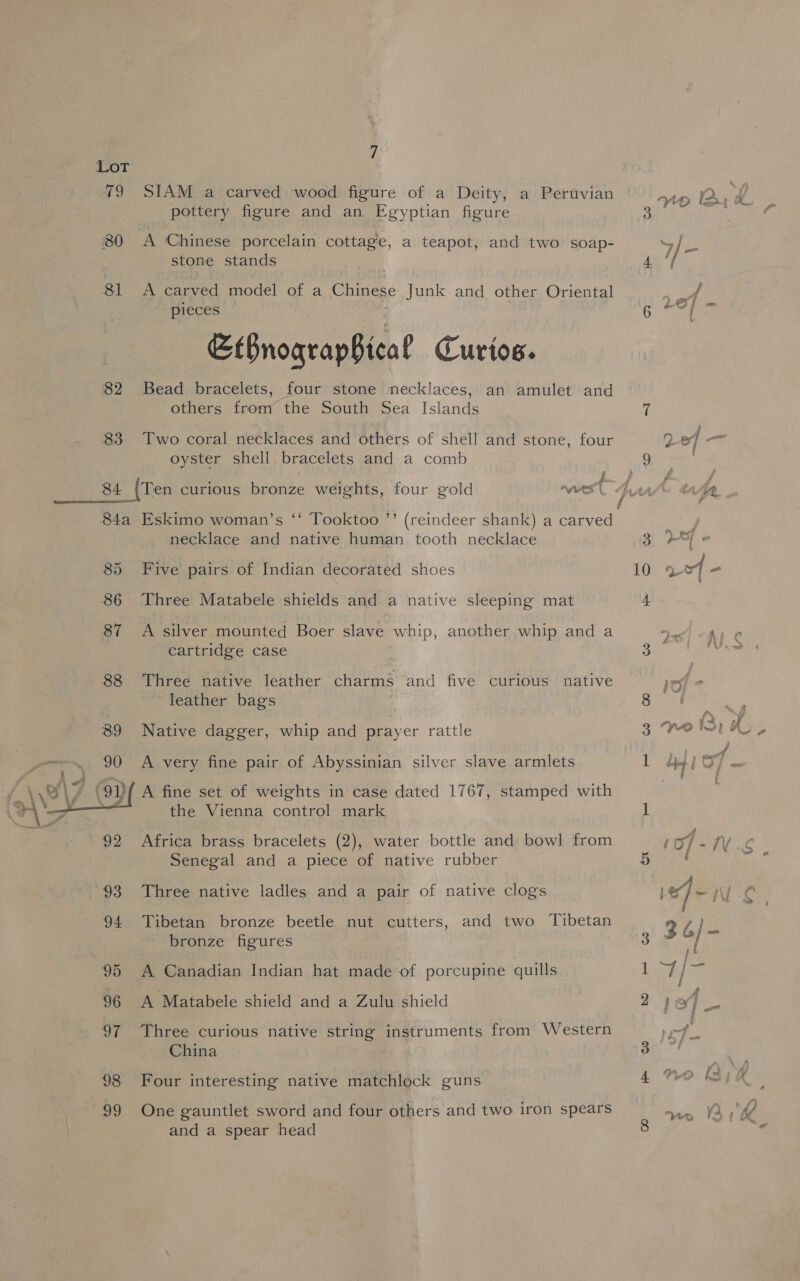 7
LOT
79 SIAM a carved wood figure of a Deity, a Peruvian
pottery figure and an Egyptian figure 3
80 A Chinese porcelain cottage, a teapot, and two soap-
stone stands 4 7/-
81 A carved model of a Chinese Junk and other Oriental
pieces 6
Ethnographical Curios.
82 Bead bracelets, four stone necklaces, an amulet and
others from the South Sea Islands 7
83 Two coral necklaces and others of shell and stone, four
oyster shell bracelets and a comb 9
84 (Ten curious bronze weights, four gold
84a Eskimo woman's “ Tooktoo ” (reindeer shank) a carved
necklace and native human tooth necklace 3
85 Five pairs of Indian decorated shoes 10
86 Three Matabele shields and a native sleeping mat 4
87 A silver mounted Boer slave whip, another whip and a
cartridge case 3
88 Three native leather charms and five curious native
leather bags 8
89 Native dagger, whip and prayer rattle 3
90 A very fine pair of Abyssinian silver slave armlets 1
91 ( A fine set of weights in case dated 1767, stamped with
the Vienna control mark 1
92 Africa brass bracelets (2), water bottle and bowl from
Senegal and a piece of native rubber 5
93 Three native ladles and a pair of native clogs
94 Tibetan bronze beetle nut cutters, and two Tibetan
bronze figures 3 36/-
95 A Canadian Indian hat made of porcupine quills 1 7/-
96 A Matabele shield and a Zulu shield 2
97 Three curious native string instruments from Western
China 3
98 Four interesting native matchlock guns 4
99 One gauntlet sword and four others and two iron spears
and a spear head 8